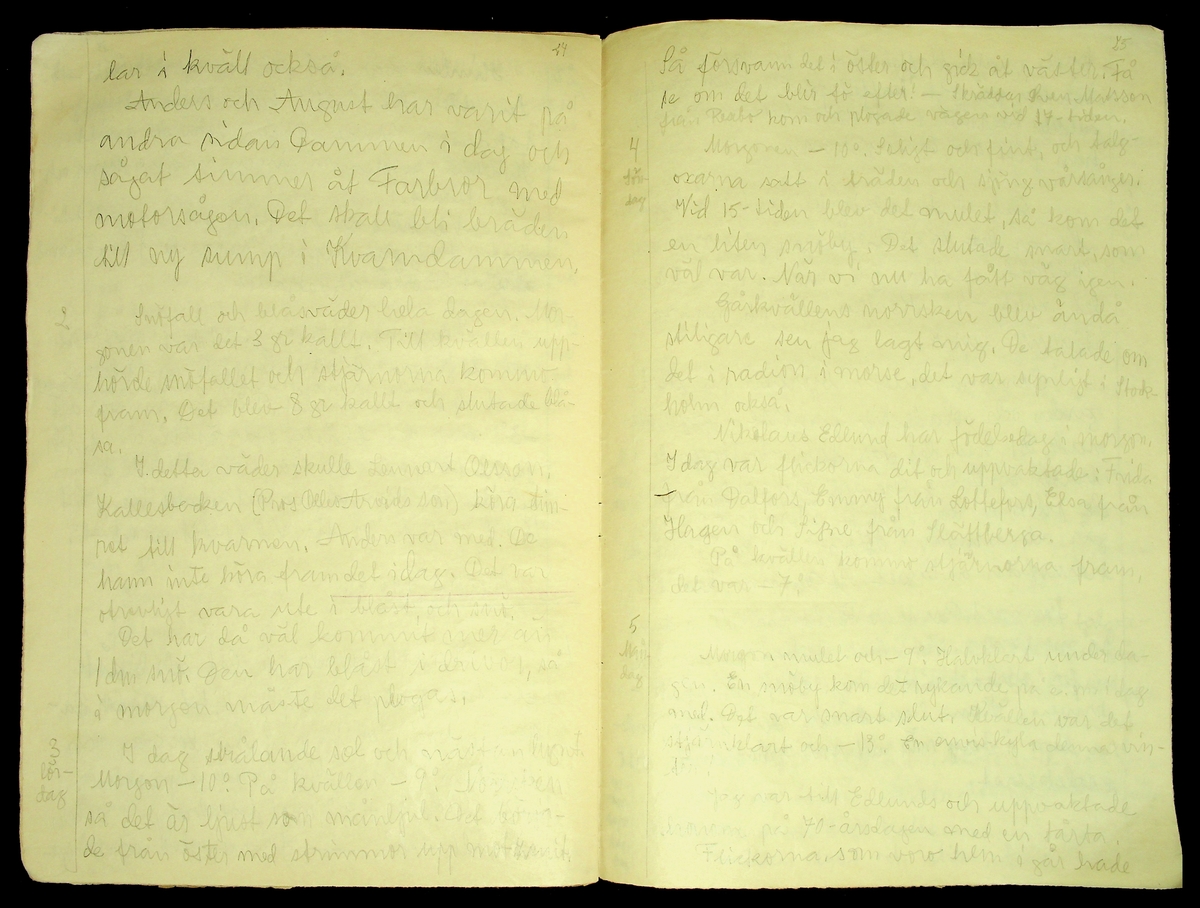 24
lar i kväll också.
Anders och August har varit på
andra sidan Dammen i dag och
sågat timmer åt Farbror med
motorsågen. Det skall bli bräden
till ny sump i Kvarndammen.
2
Snöfall och blåsväder hela dagen. Mor-
gonen var det 3 gr kallt. Till kvällen upp-
hörde snöfallet och stjärnorna kommo
fram. Det blev 8 gr kallt och slutade blå-
sa.
I detta väder skulle Lennart Olsson,
Kallesbacken (Pros Olles Arvids son) köra tim-
ret till kvarnen. Anders var med. De
hann inte köra fram det idag. Det var
otrevligt vara ute i blåst och snö.
Det har då väl kommit mer än
1 dm snö. Den har blåst i drivor, så
i morgon måste det plogas.
3
lör-
dag
I dag strålande sol och nästan lugnt.
Morgon -10°. På kvällen -9°.
så det är ljust som månljus. Det
de från öster med strimmor upp mot
25
Så försvann det i öster och gick åt väster. Få
se om det blir tö efter! — Skräddar Sven Matsson
från Raabo kom och plogade vägen vid 14-tiden.
4
sön-
dag
Morgonen -10°. Soligt och fint, och talg-
oxarna satt i träden och sjöng vårsånger.
Vid 15-tiden blev det mulet, så kom det
en liten snöby. Det slutade snart, som
väl var. När vi nu ha fått väg igen.
Gårkvällens norrsken blev ändå
stiligare sen jag lagt mig. De talade om
det i radion i morse, det var synligt i Stock-
holm också.
Nikolaus Edlund har födelsdag i morgon.
I dag var flickorna dit och uppvaktade: Frida
från Dalfors, Emmy från Lottefors, Elsa från
Hagen och Signe från Slättberga.
På kvällen kommo stjärnorna fram,
det var -7°.
5
Mån-
dag
Morgon mulet och -9°. Halvklart under da-
gen. En snöby kom det rykande på e.m. i dag
med. Det var snart slut. Kvällen var det
stjärnklart och -13°. En
Jag var till Edlunds och uppvaktade
på 70-årsdagen med en tårta.
Flickorna, som voro hem i går hade